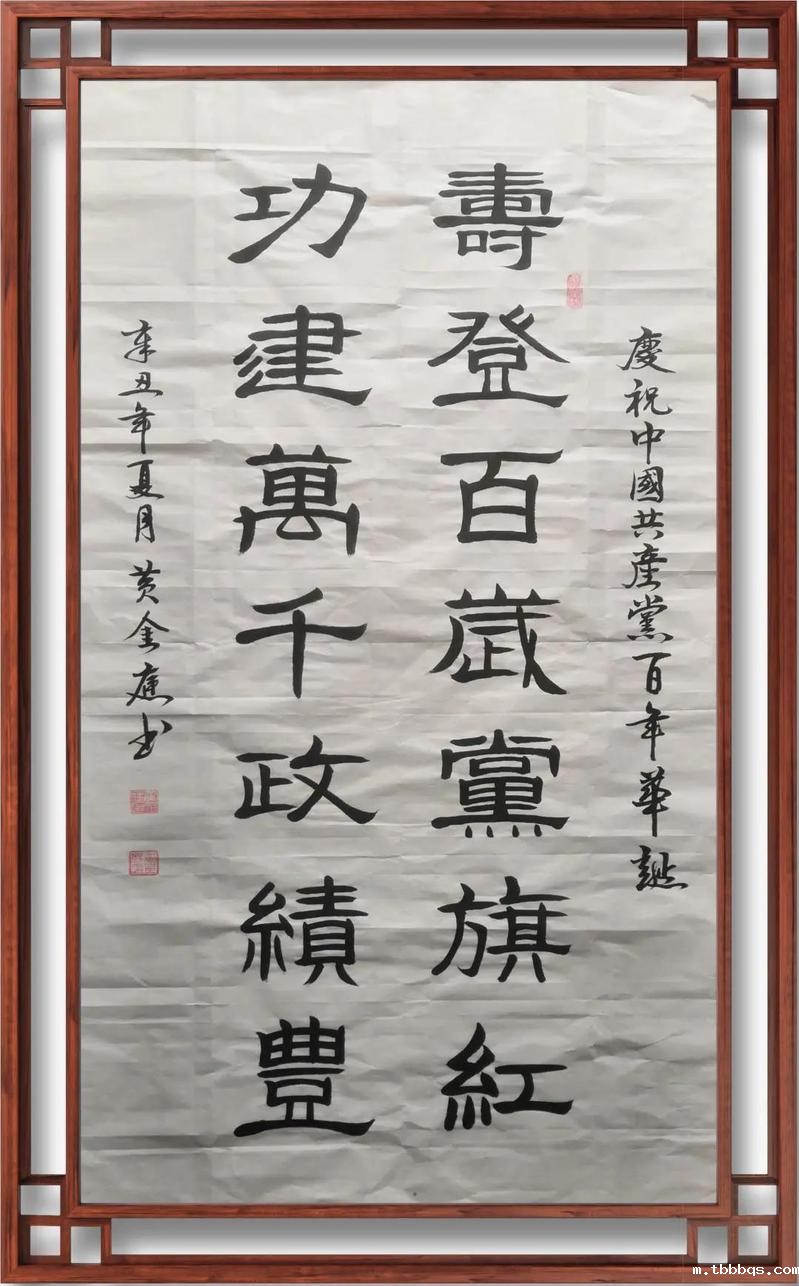 慶祝中國共產黨百年華誕
壽登百歲黨旗紅
功建萬千政績豐
辛丑年夏月黃金應書
m.tbbbqs.com